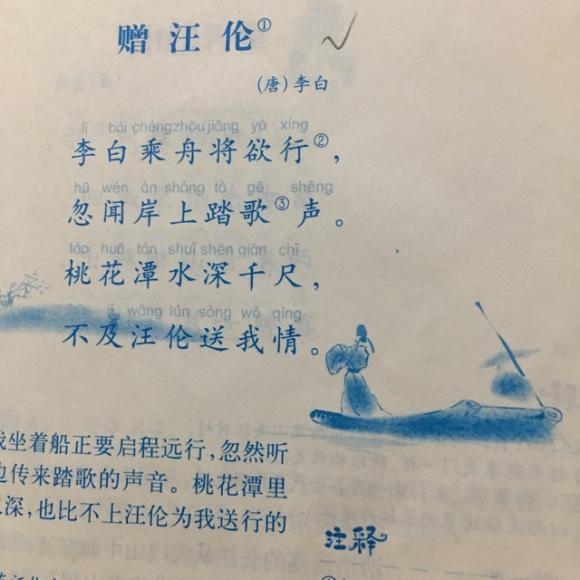 赠汪伦①
(唐)李白
lǐ bái chéng zhōu jiāng yù xíng
李白乘舟将欲行②,
hū wén àn shàng tà gē shēng
忽闻岸上踏歌③声。
táo huā tán shuǐ shēn qiān chǐ
桃花潭水深千尺,
jí wāng lún sòng wǒ qíng
不及汪伦送我情。
坐着船正要启程远行,忽然听
传来踏歌的声音。桃花潭里
深,也比不上汪伦为我送行的
注释